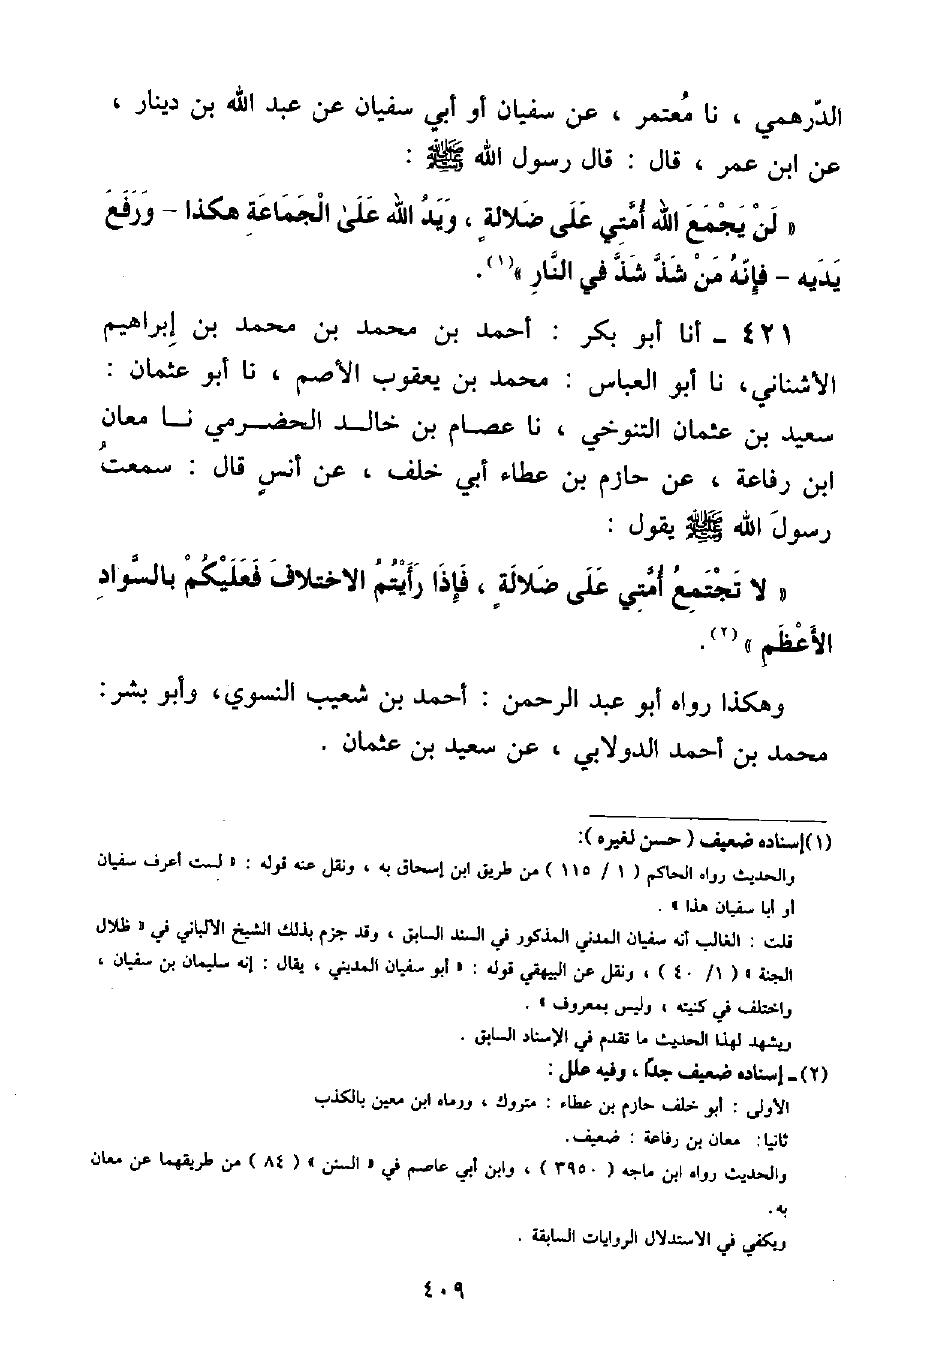 الدّرهمي ، نا مُعتمر ، عن سفيان أو أبي سفيان عن عبد الله بن دينار ،
عن ابن عمر ، قال : قال رسول الله ﷺ :
« لَنْ يَجْمَعَ الله أُمَّتي عَلَى ضَلالةٍ ، وَيَدُ الله عَلَىٰ الْجَمَاعَةِ هكذا – وَرَفَعَ
يَدَيه – فَإِنَّهُ مَنْ شَذَّ شَذَّ في النَّارِ »(١).
٤٢١ ـ أنا أبو بكر : أحمد بن محمد بن محمد بن إبراهيم
الأشناني، نا أبو العباس : محمد بن يعقوب الأصم ، نا أبو عثمان :
سعيد بن عثمان التنوخي ، نا عصام بن خالد الحضرمي نا معان
ابن رفاعة ، عن حازم بن عطاء أبي خلف ، عن أنسٍ قال : سمعتُ
رسولَ الله ﷺ يقول :
« لا تَجْتَمِعُ أُمَّتي عَلَى ضَلالَةٍ ، فَإِذَا رَأَيْتُمُ الاختلافَ فَعَلَيْكُمْ بالسَّوادِ
الأَعْظَمِ »(٢).
وهكذا رواه أبو عبد الرحمن : أحمد بن شعيب النسوي، وأبو بشر:
محمد بن أحمد الدولابي ، عن سعيد بن عثمان .
(١)إسناده ضعيف ( حسن لغيره ):
والحديث رواه الحاكم ( ١ / ١١٥ ) من طريق ابن إسحاق به ، ونقل عنه قوله : « لست أعرف سفيان
أو أبا سفيان هذا » .
قلت : الغالب أنه سفيان المدني المذكور في السند السابق ، وقد جزم بذلك الشيخ الألباني في « ظلال
الجنة » ( ١/ ٤٠ ) ، ونقل عن البيهقي قوله : « أبو سفيان المديني ، يقال : إنه سليمان بن سفيان ،
واختلف في كنيته ، وليس بمعروف » .
ويشهد لهذا الحديث ما تقدم في الإسناد السابق .
(٢)ـ إسناده ضعيف جدًا ، وفيه علل :
الأولى : أبو خلف حازم بن عطاء : متروك ، ورماه ابن معين بالكذب
ثانيا: معان بن رفاعة : ضعيف.
والحديث رواه ابن ماجه ( ٣٩٥٠ ) ، وابن أبي عاصم في « السنن » ( ٨٤ ) من طريقهما عن معان
به.
ويكفي في الاستدلال الروايات السابقة .
٤٠٩